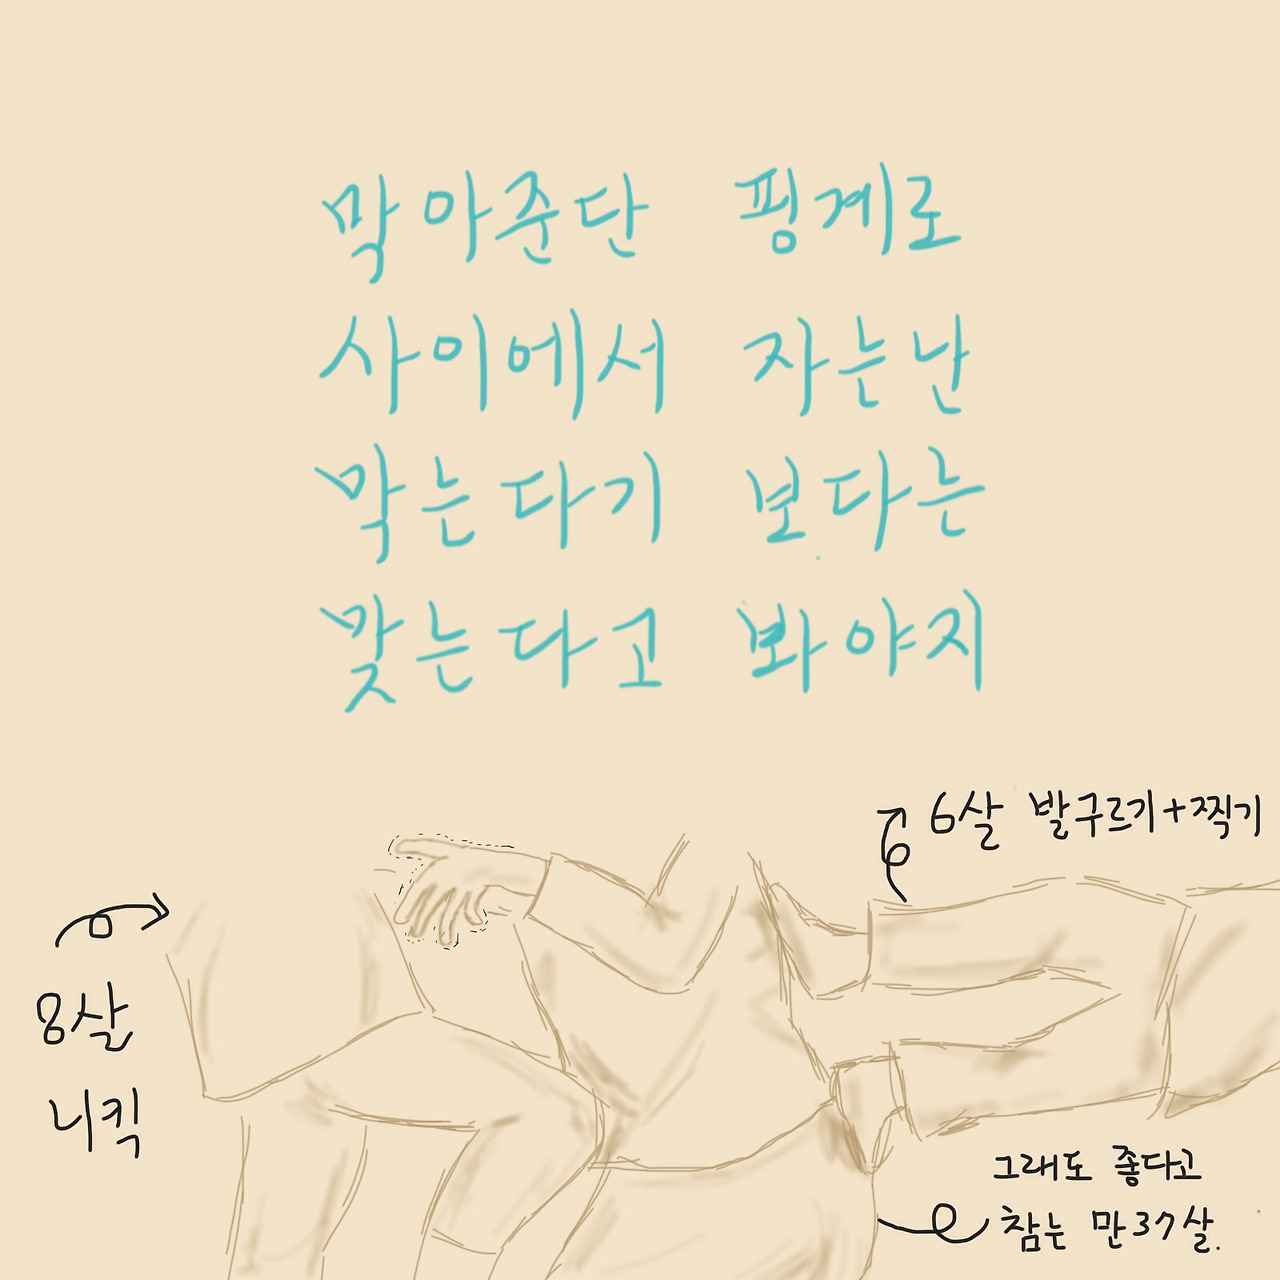 막아준단 핑계로
사이에서 자는난
막는다기 보다는
맞는다고 봐야지
6살 발구르기+찍기
8살
니킥
그래도 좋다고
참는 만37살.